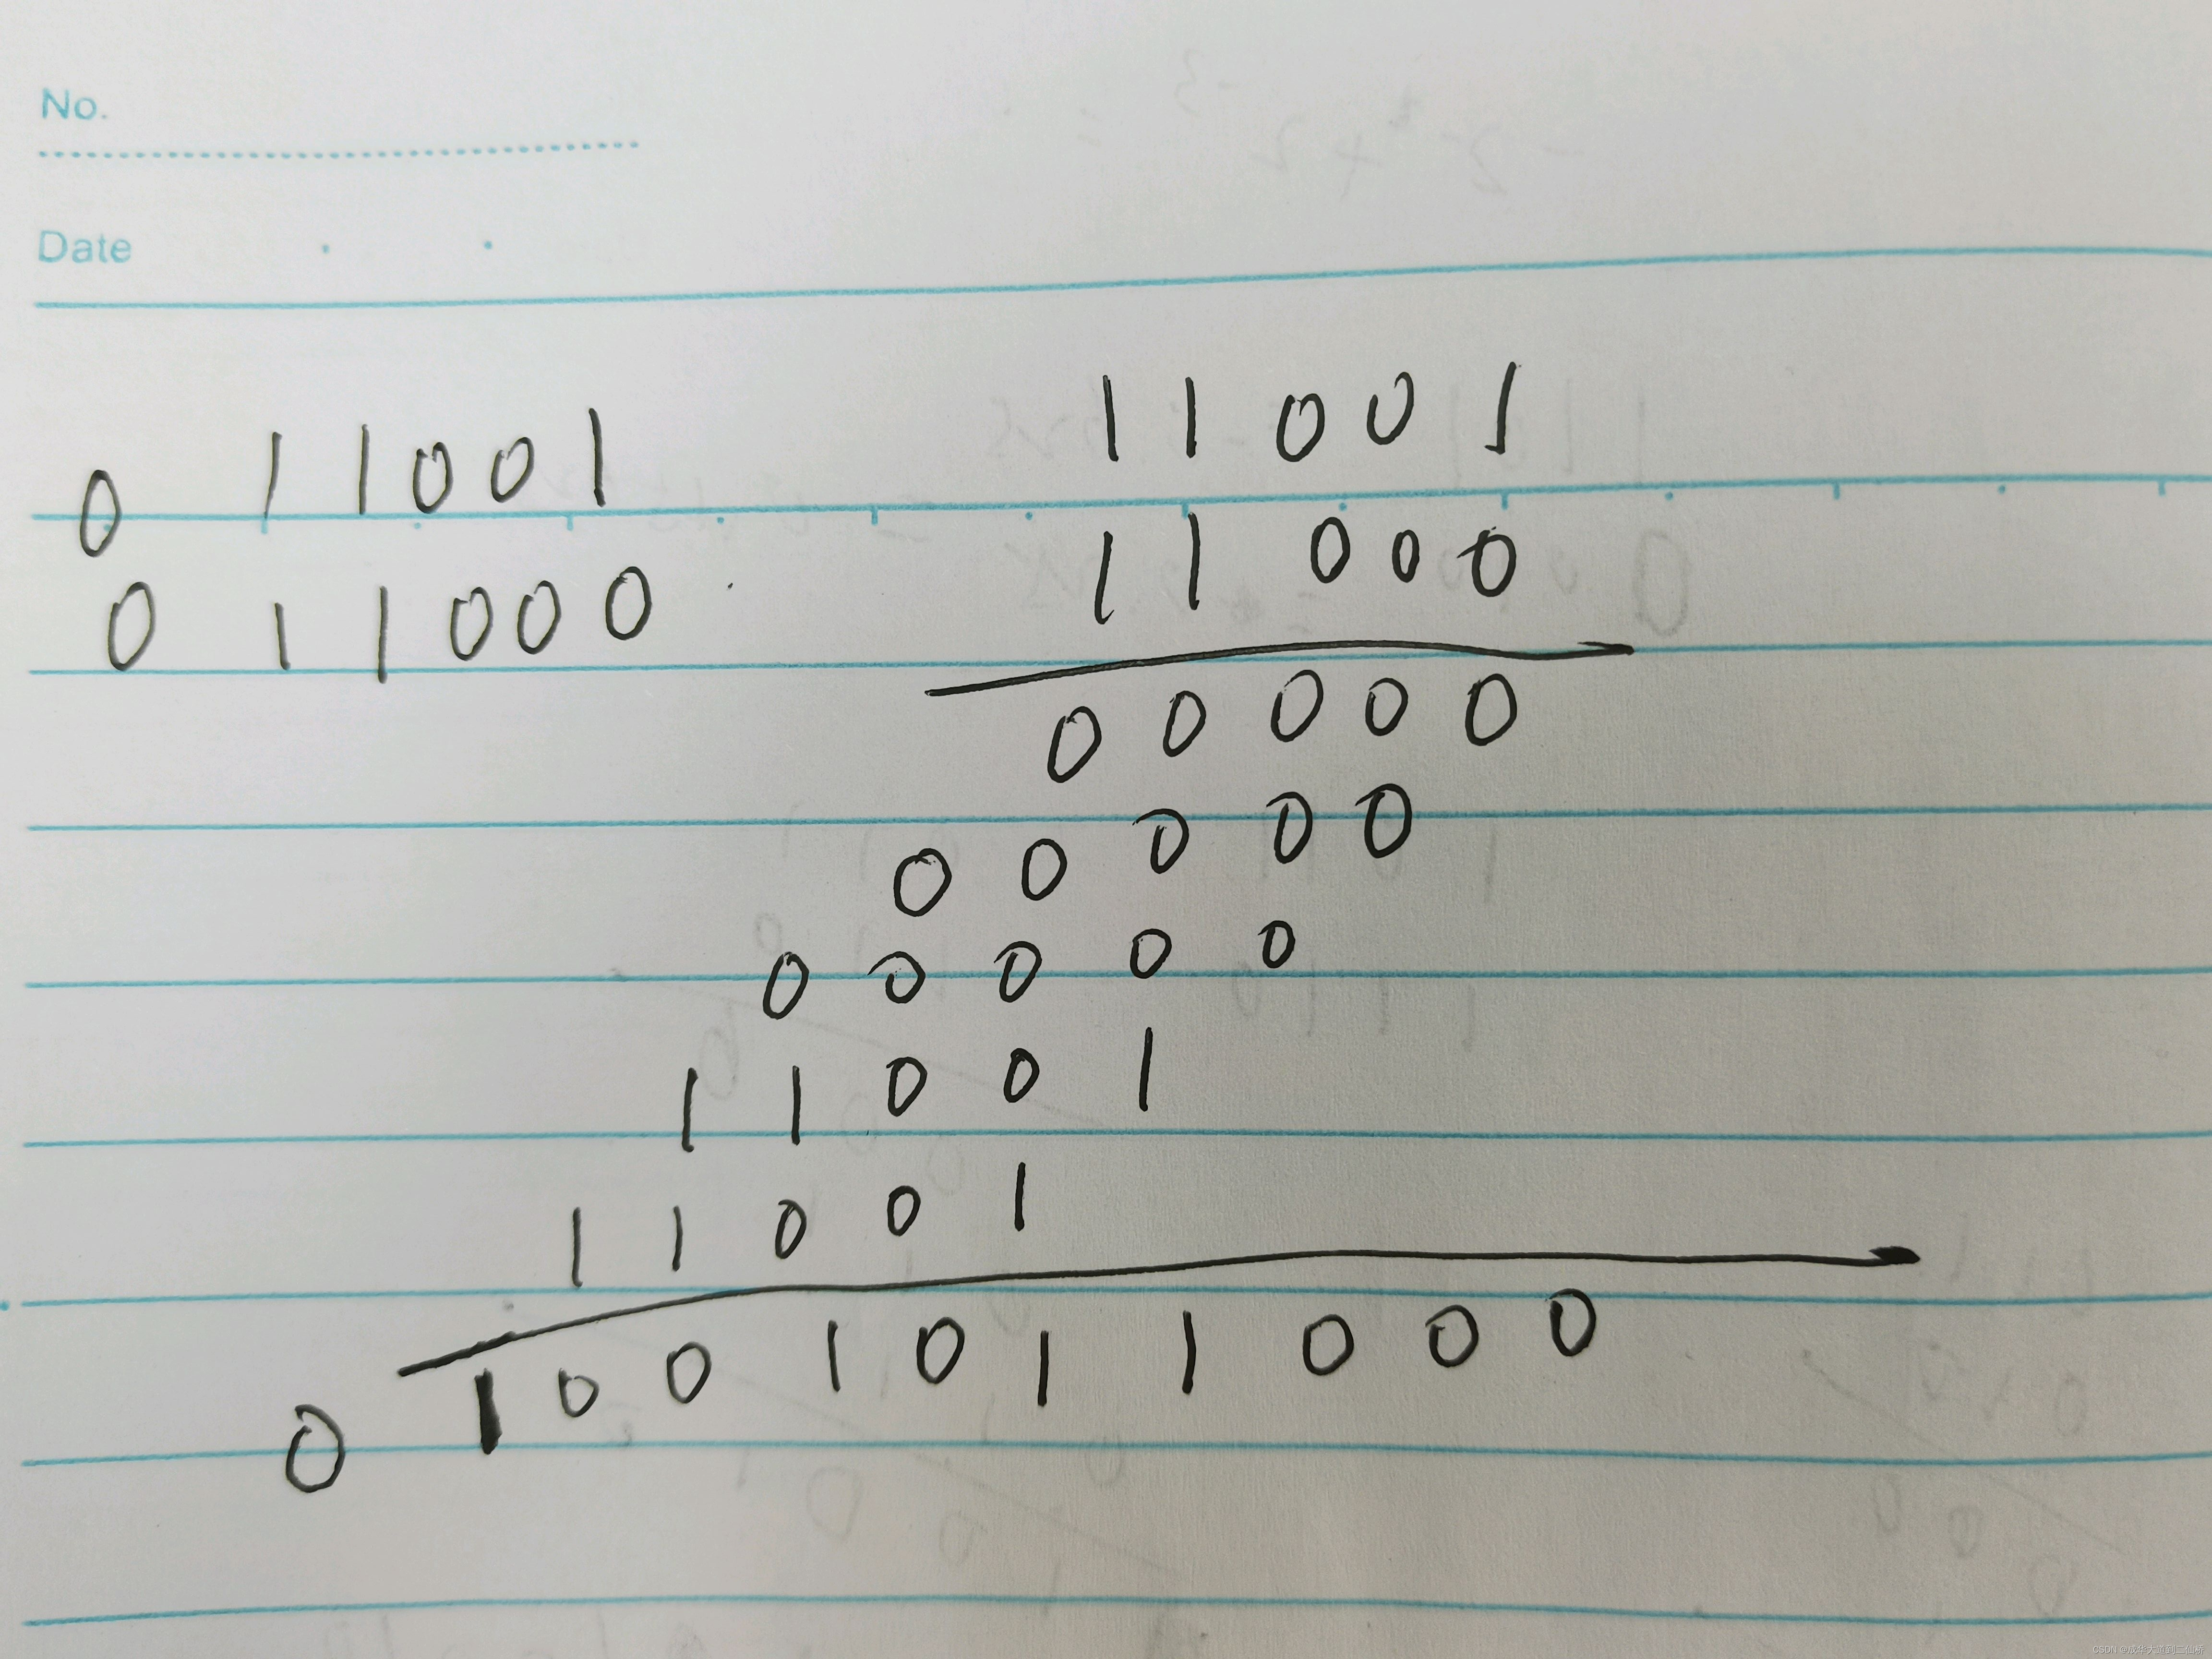 No.
Date
0 11001
0 11000
11001
11000
00000
00000
00000
11001
11001
0 1001011000